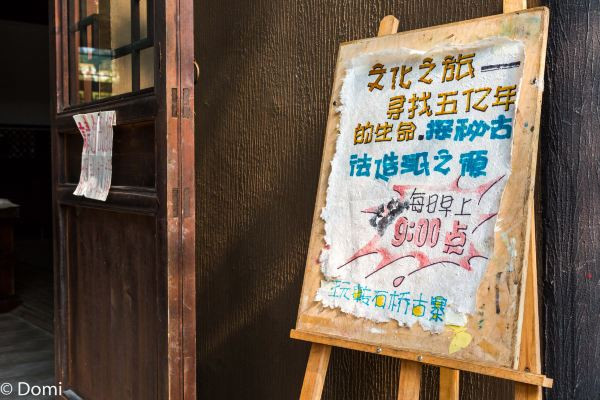 文化之旅——
寻找五亿年
的生命.探秘古
法造纸之源
每日早上
9:00点
玩转石桥古寨
© Domi